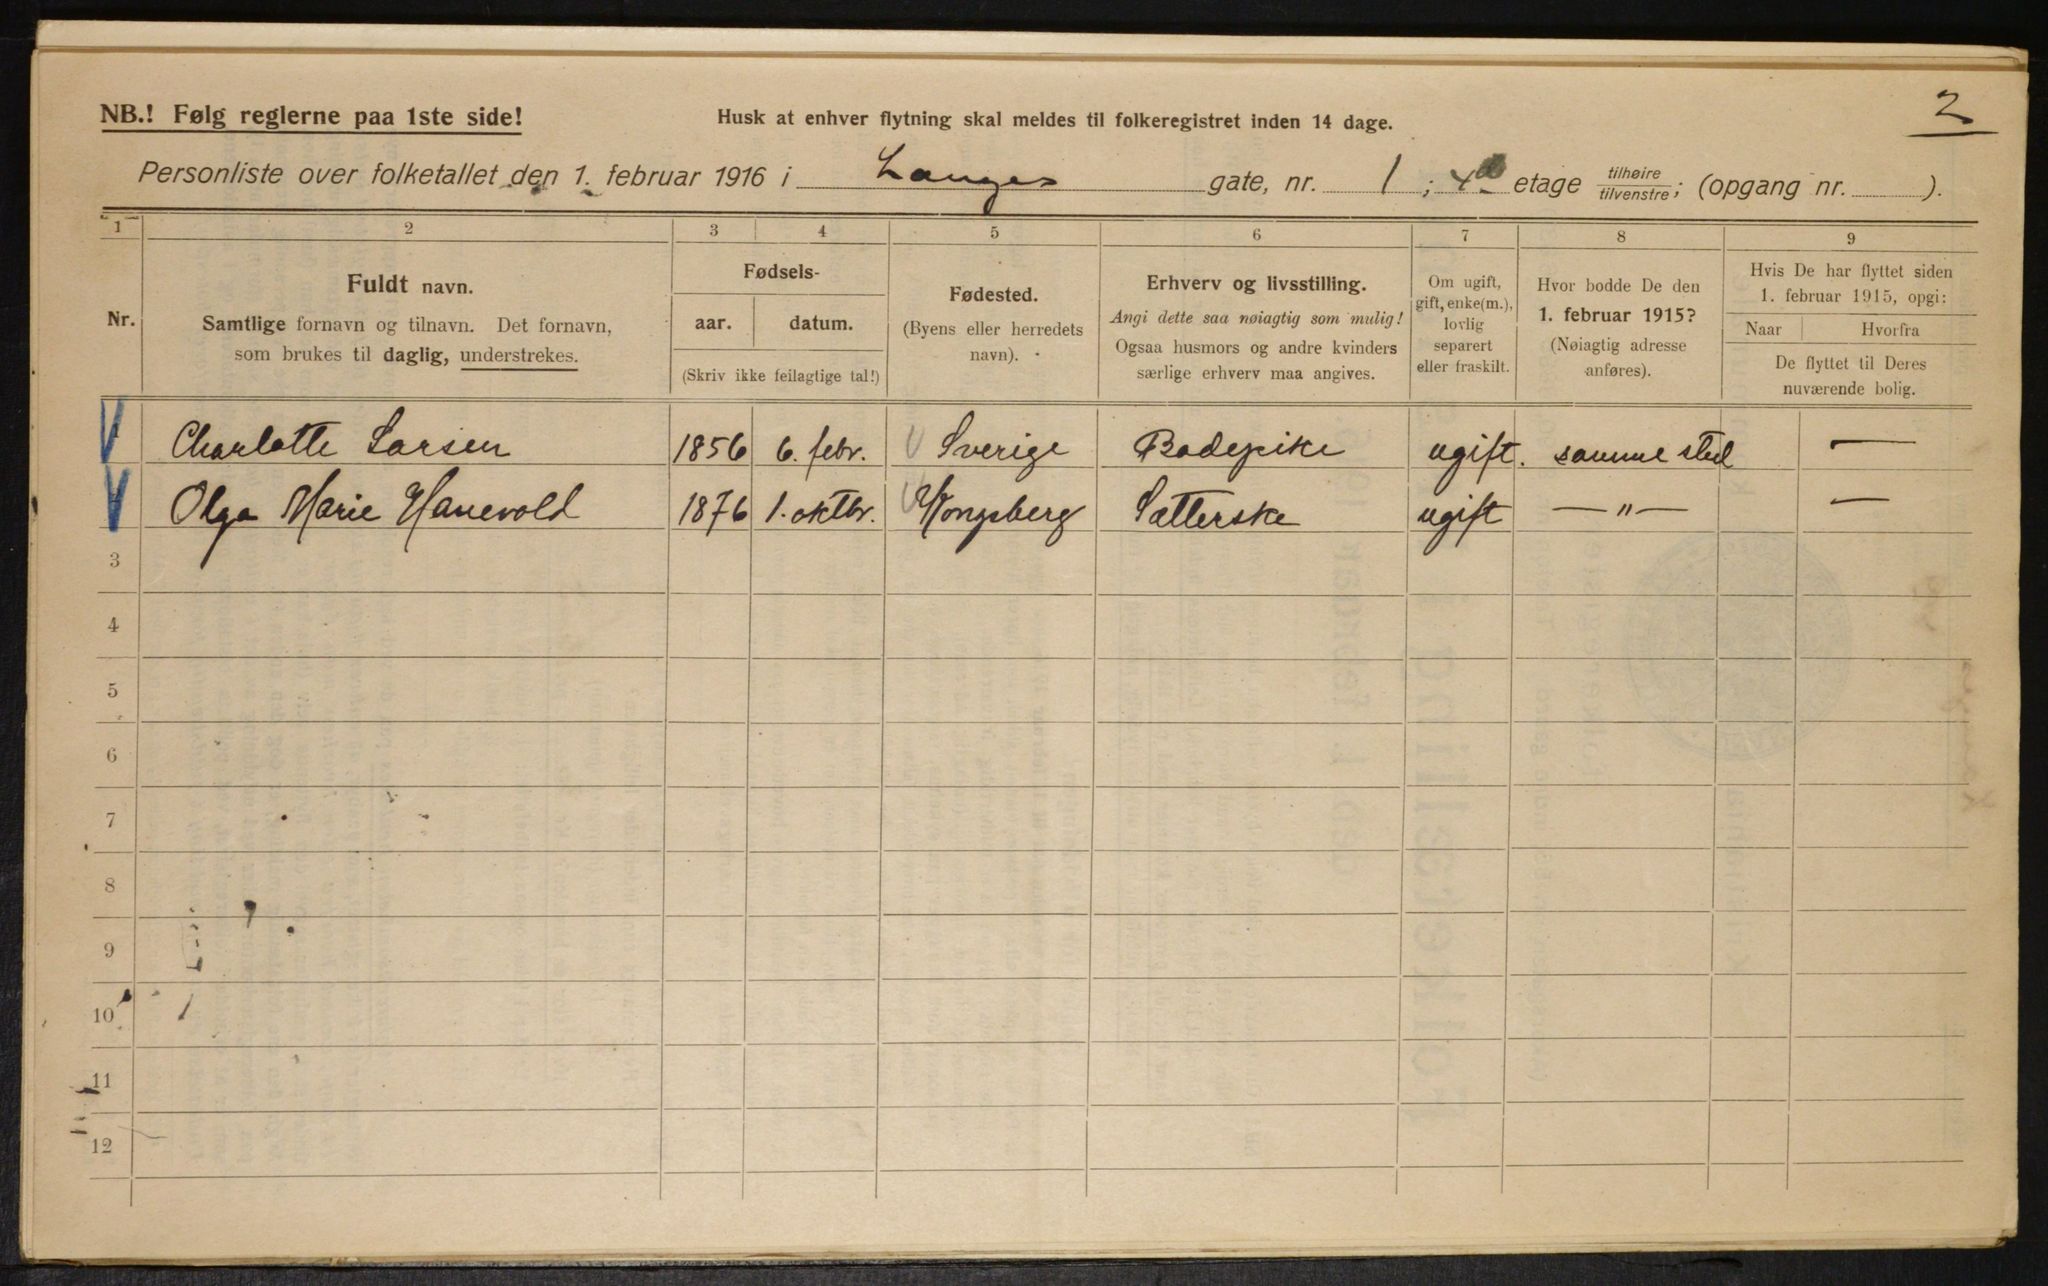 2
NB.! Følg reglerne paa 1ste side!
Husk at enhver flytning skal meldes til folkeregistret inden 14 dage.
Personliste over folketallet den 1. februar 1916 i Langes gate, nr. 1 ; 4 etage tilhøire tilvenstre; (opgang nr. ).
1 2 3 4 5 6 7 8 9
Nr.
Fuldt navn.
Samtlige fornavn og tilnavn. Det fornavn,
som brukes til daglig, understrekes.
Fødsels-
aar. datum.
(Skriv ikke feilagtige tal!)
Fødested.
(Byens eller herredets
navn).
Erhverv og livsstilling.
Angi dette saa nøiagtig som mulig!
Ogsaa husmors og andre kvinders
særlige erhverv maa angives.
Om ugift,
gift, enke(m.),
lovlig
separert
eller fraskilt.
Hvor bodde De den
1. februar 1915?
(Nøiagtig adresse
anføres).
Hvis De har flyttet siden
1. februar 1915, opgi:
Naar Hvorfra
De flyttet til Deres
nuværende bolig.
Charlotte Larsen 1856 6. febr. Sverige Badepike ugift. samme sted —
Olga Marie Hanevold 1876 1. oktbr. Kongsberg Sætterske ugift — " — —
3
4
5
6
7
8
9
10
11
12